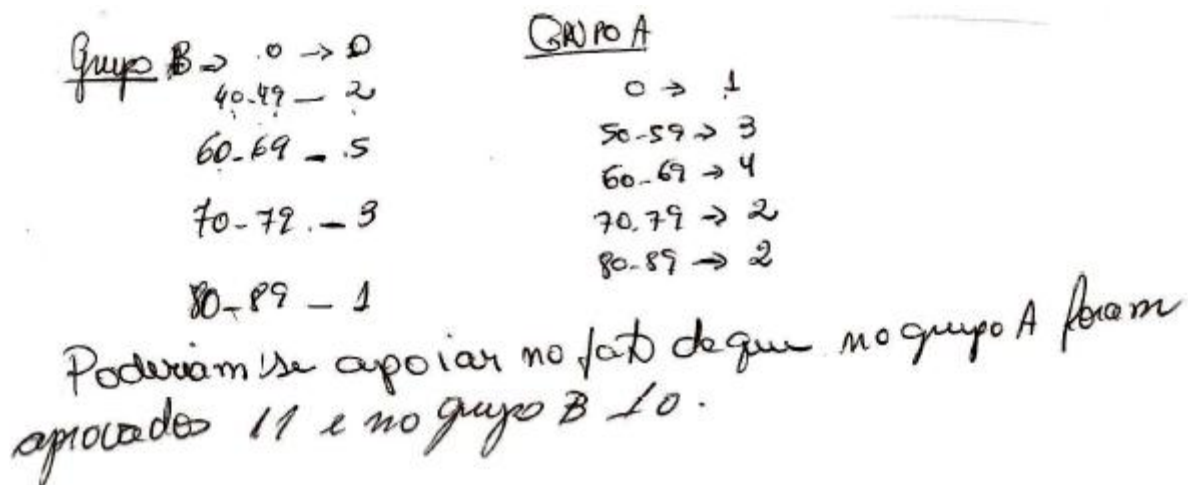 Grupo B → 0 → 0
40-49 — 2
60-69 — 5
70-79 — 3
80-89 — 1
GRUPO A
0 → 1
50-59 → 3
60-69 → 4
70-79 → 2
80-89 → 2
Poderiam se apoiar no fato de que no grupo A foram
aprovados 11 e no grupo B 10.